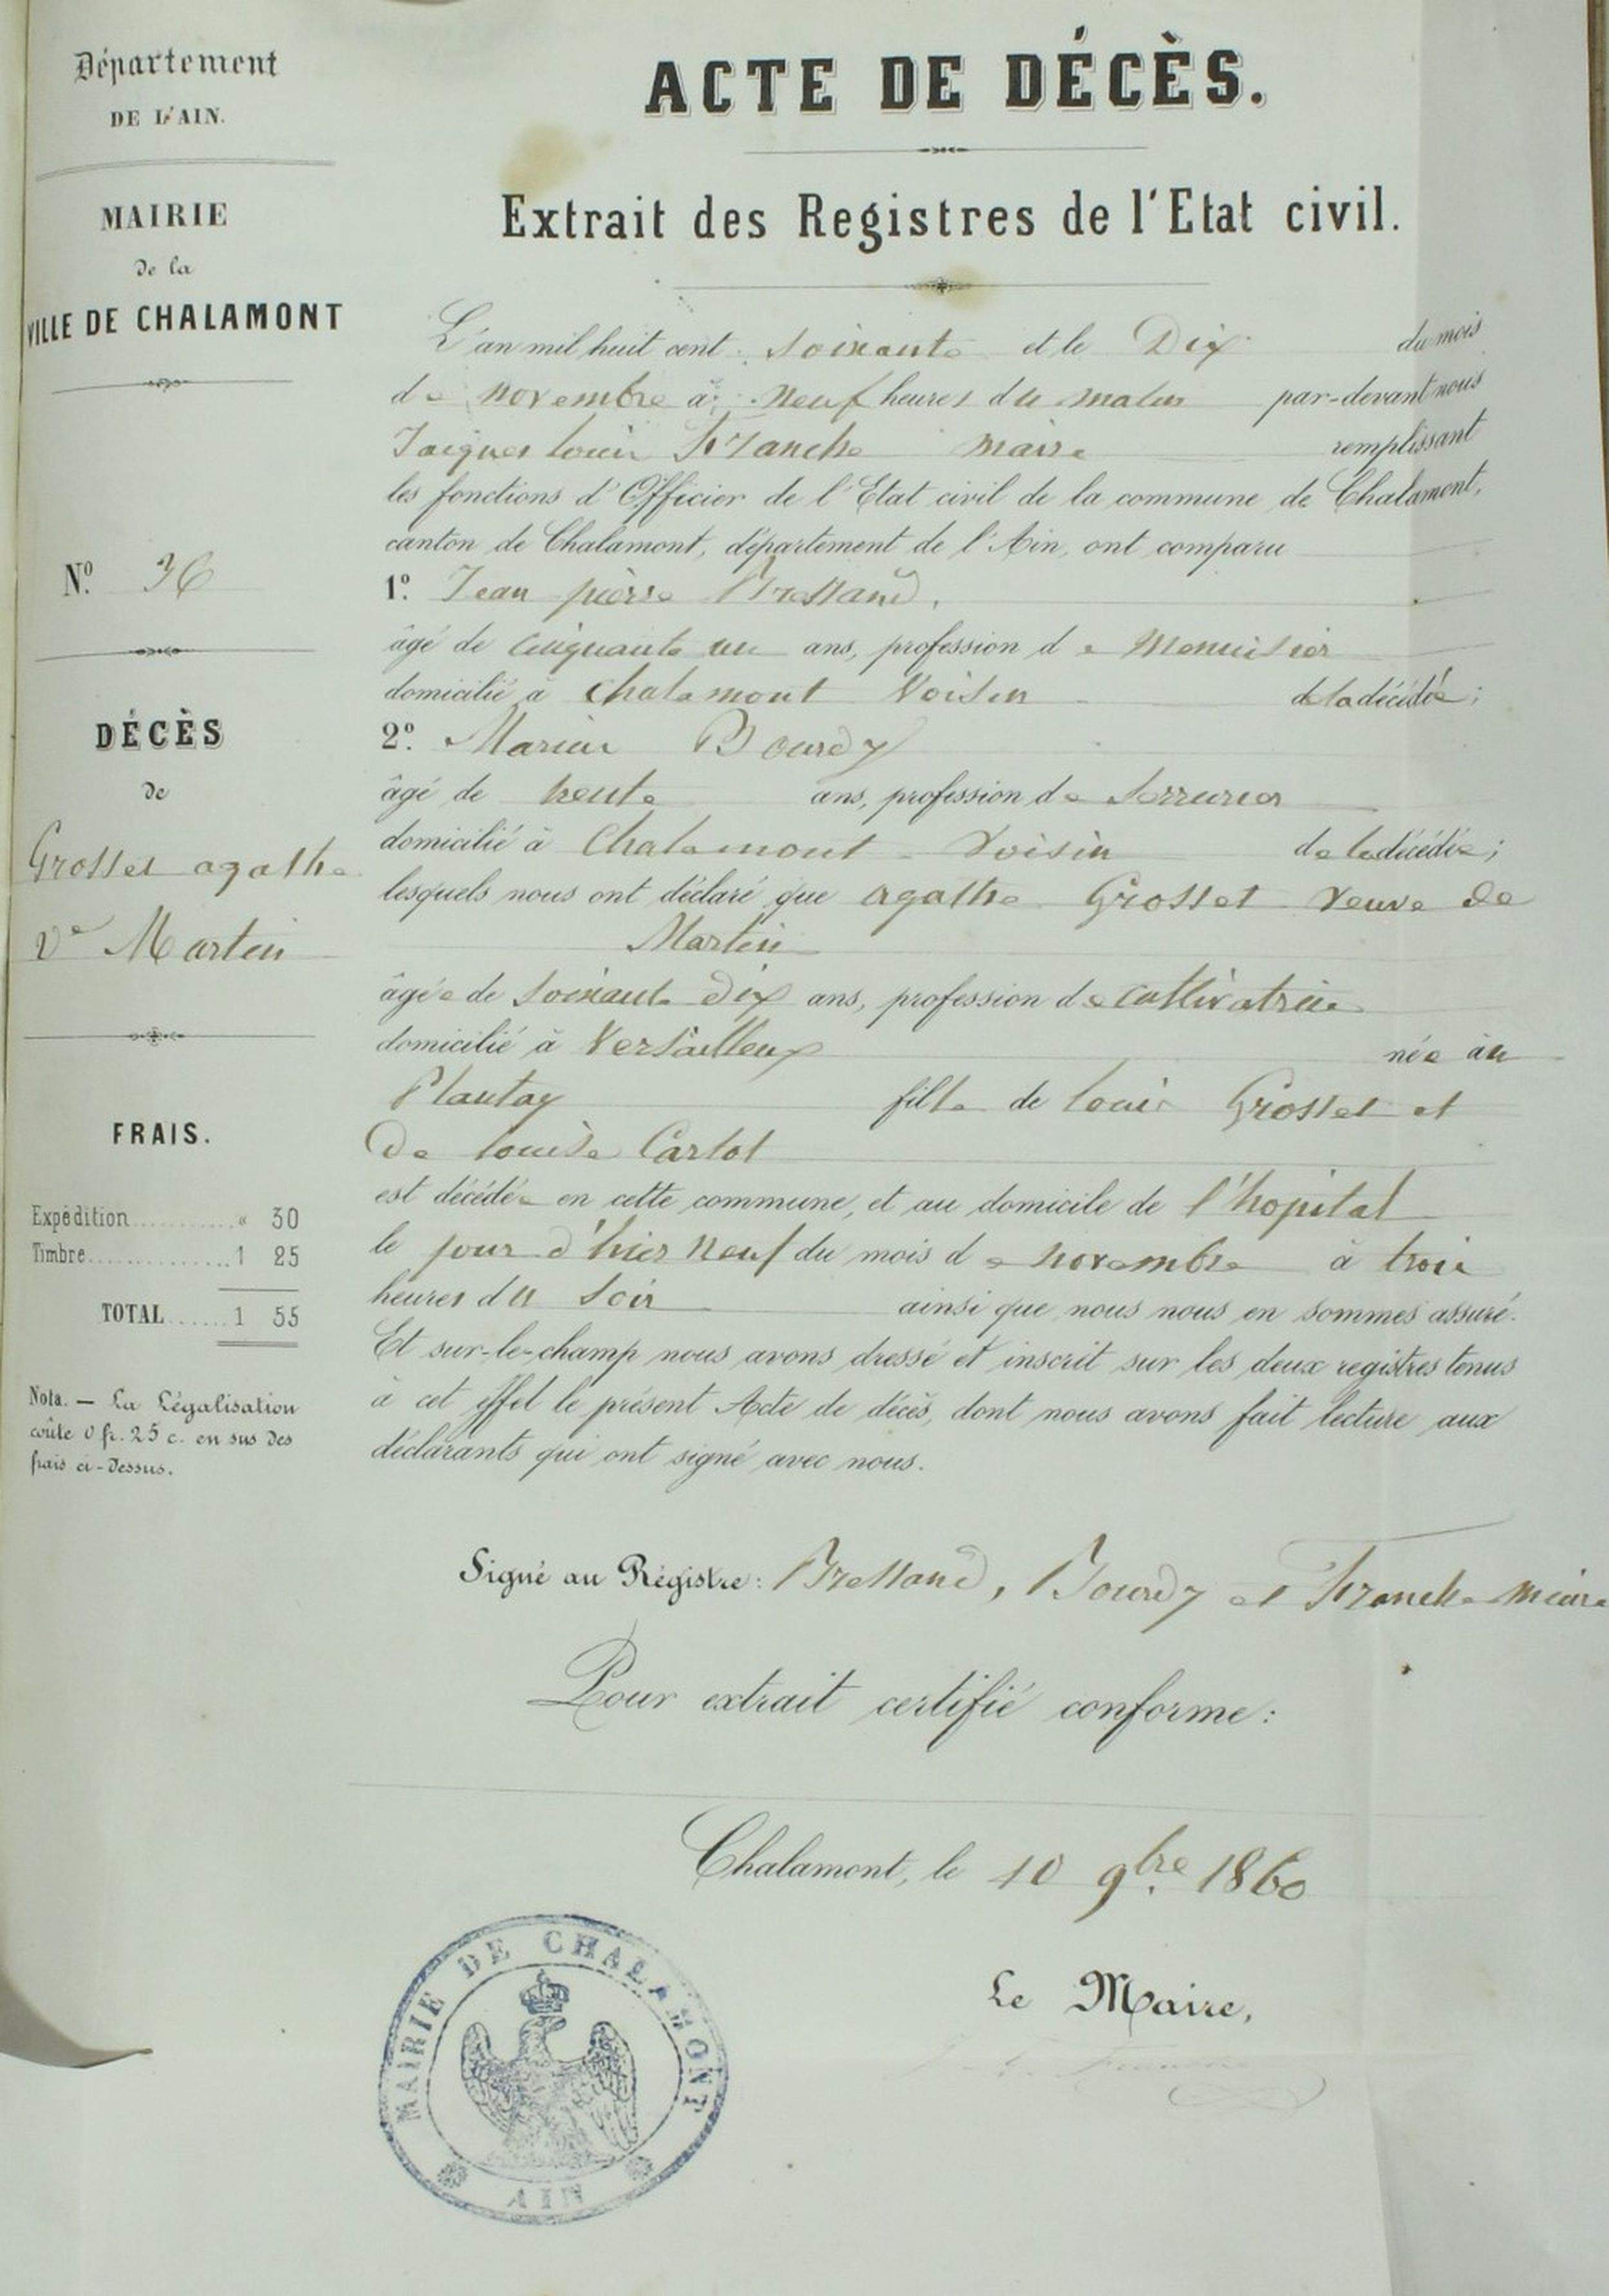 Département
DE L'AIN.
MAIRIE
de la
VILLE DE CHALAMONT
N.º 36
DÉCÈS
de
Grosset agathe
Ve Martin
FRAIS.
Expédition............« 30
Timbre...............1 25
TOTAL......1 55
Nota. — La Légalisation
coûte 0 fr. 25 c. en sus des
frais ci-dessus.
ACTE DE DÉCÈS.
Extrait des Registres de l'Etat civil.
L'an mil huit cent soixante et le Dix du mois
de novembre à neuf heures du matin par-devant nous
Jacques louis Franche maire remplissant
les fonctions d'Officier de l'Etat civil de la commune de Chalamont,
canton de Chalamont, département de l'Ain, ont comparu
1º. Jean pierre Bressand,
âgé de cinquante un ans, profession de Menuisier
domicilié à Chalamont Voisin de la décédée;
2º. Marius Bourdy
âgé de trente ans, profession de Serrurier
domicilié à Chalamont Voisin de la décédée;
lesquels nous ont déclaré que agathe Grosset Veuve de
Martin
âgée de soixante Dix ans, profession de cultivatrice
domicilié à Versailleux née au
Plantay fille de louis Grosset et
De louise Carlot
est décédée en cette commune, et au domicile de l'hopital
le jour d'hier neuf du mois de novembre à trois
heures du soir ainsi que nous nous en sommes assuré.
Et sur-le-champ nous avons dressé et inscrit sur les deux registres tenus
à cet effet le présent Acte de décès, dont nous avons fait lecture aux
déclarants qui ont signé avec nous.
Signé au Régistre: Bressand, Bourdy et Franche maire
Pour extrait certifié conforme:
Chalamont, le 10 9bre 1860
Le Maire,
MAIRIE DE CHALAMONT
AIN